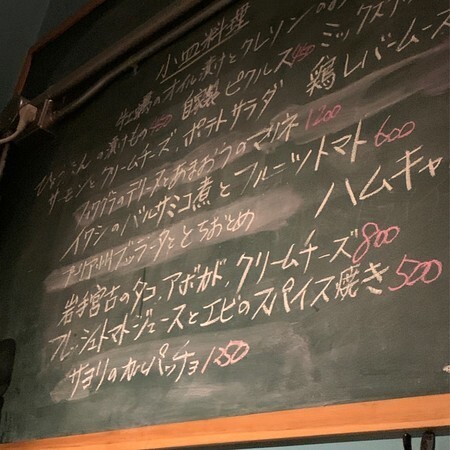 小皿料理
牡蠣のオイル漬けとクレソンの
自家製 ピクルス 450 ミックス
の漬けもの 鶏レバームース
サーモンとクリームチーズ、ポテトサラダ
フォワグラのテリーヌとあまおうのマリネ 1200
イワシのバルサミコ煮とフルーツトマト 600
ブッラータととちおとめ ハムキャ
岩手宮古のタコ、アボカド、クリームチーズ 800
フレッシュトマトジュースとエビのスパイス焼き 500
サヨリのカルパッチョ